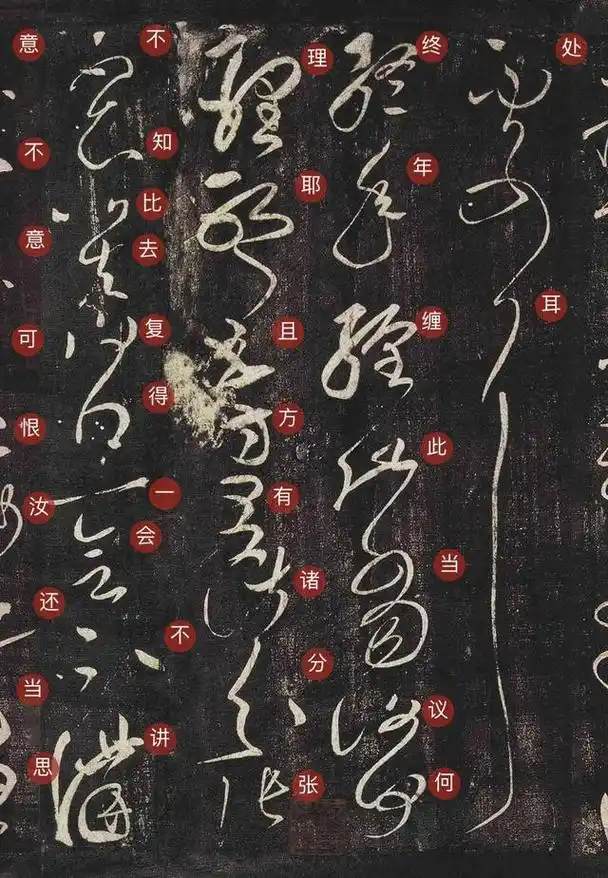 处耳
终年缠此当议何
理耶且方有诸分张
不知比去复得一会不讲
意不意可恨汝还当思